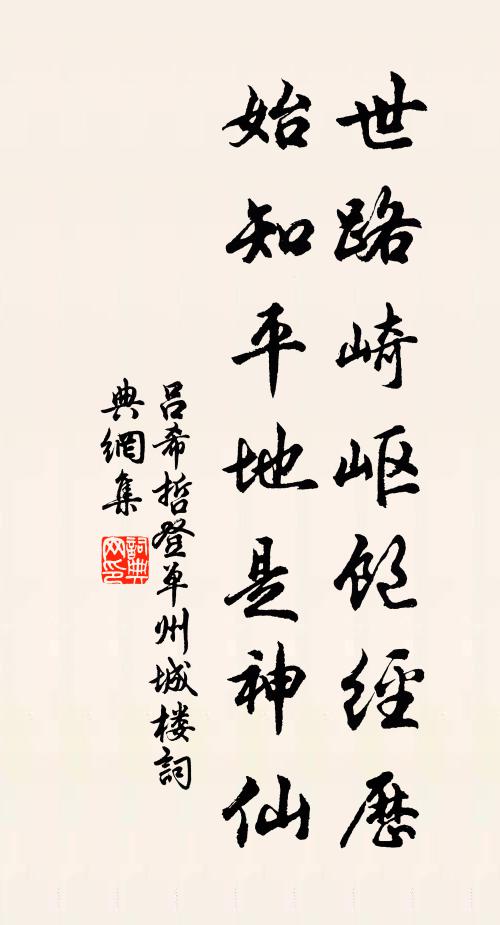 世路崎岖饱经歷
始知平地是神仙
吕希哲登单州城楼詞
典網集
詞典网印